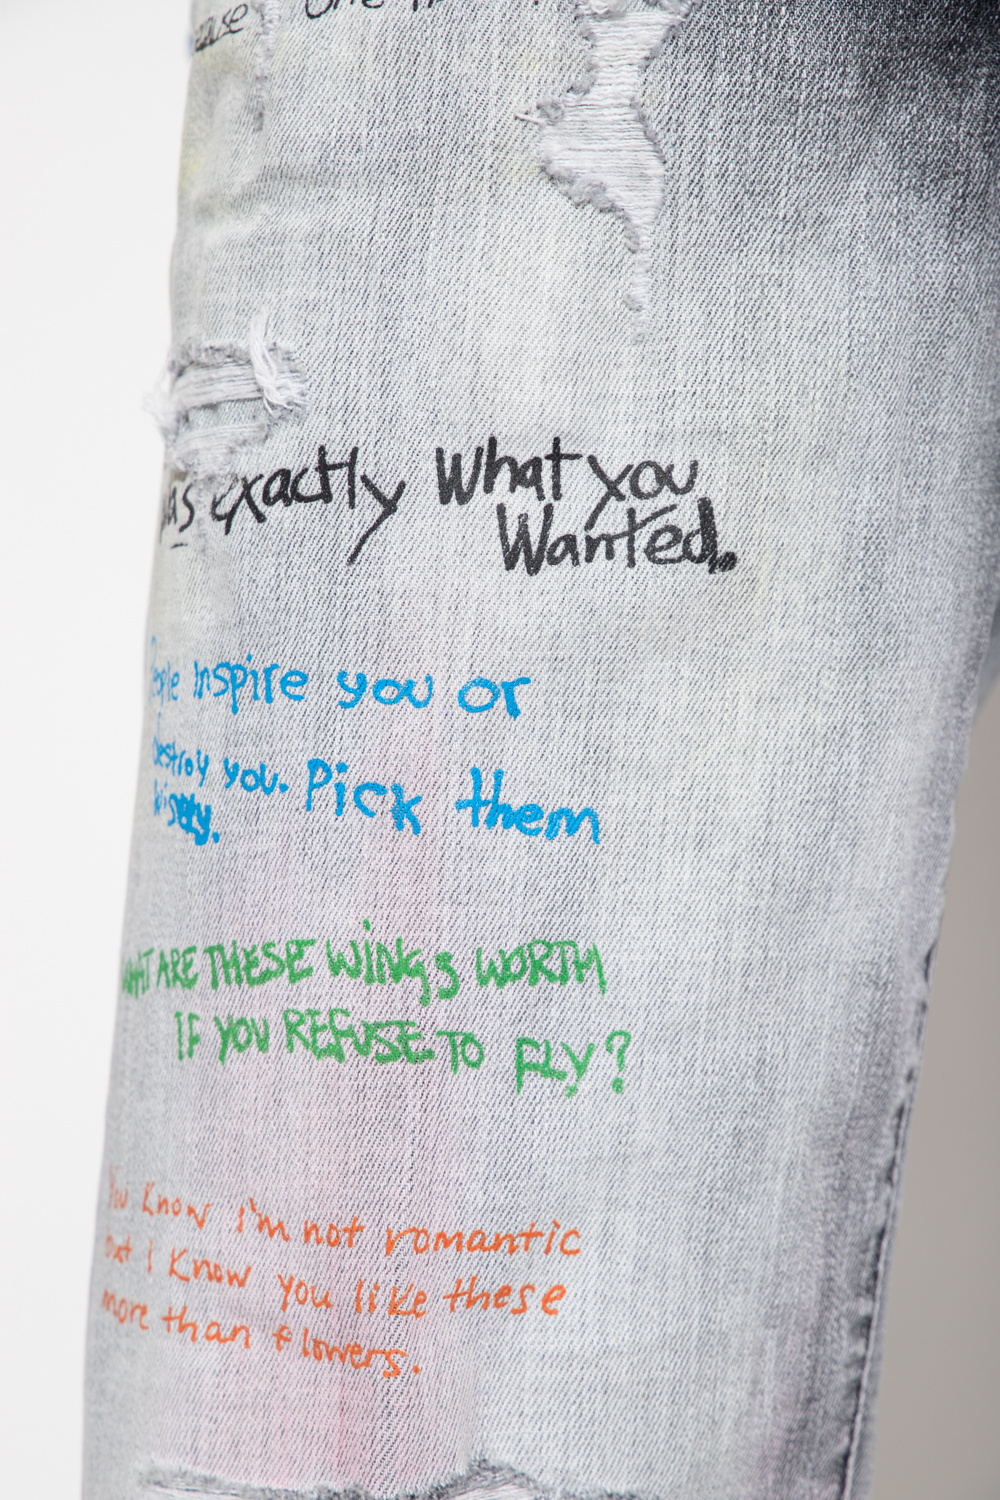 one
was exactly What you
Wanted.
People inspire you or
Destroy you. Pick them
Wisely.
WHAT ARE THESE WiNGS WORTH
IF YOU REFUSE TO FLY?
You know i'm not romantic
but i know you like these
more than flowers.